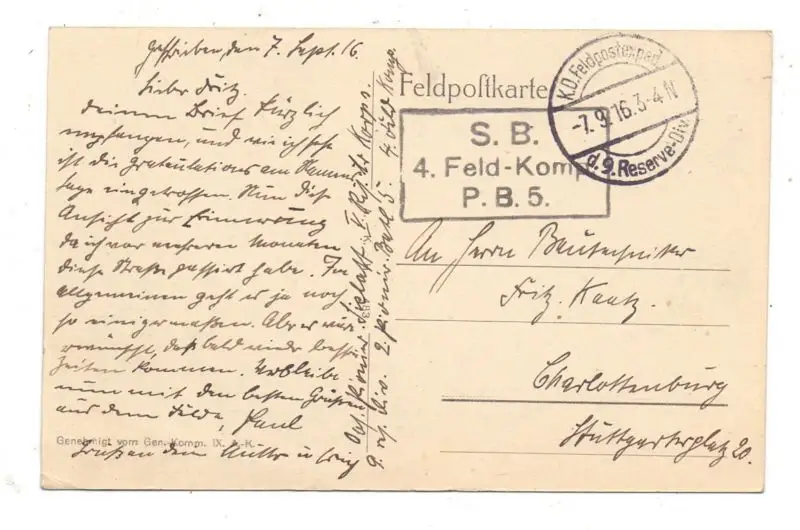 geschrieben, den 7. Sept. 16.
Lieber Fritz.
Deinen Brief kürzlich
empfangen, und wie ich sehe
ist die Gratulations am Namens
tage eingetroffen. Nun diese
Ansicht zur Erinnerung
da ich vor mehreren Monaten
diese Straße passirt habe. Im
allgemeinen geht es ja noch
so einigermaßen. Aber es wäre
erwünscht, daß bald wieder bessre
Zeiten kommen. Verbleibe
nun mit den besten Grüßen
aus dem Felde, Paul
Genehmigt vom Gen. Komm. IX. A.-K.
Grüßen
Pionier V. Res. Korps.
9. res. Div. 2. Pionir. Batl. 5. 4. Feld Komp.
Feldpostkarte
K.D. Feldpostexped.
-7.9.16.3-4 N
d. 9. Reserve-Div.
S. B.
4. Feld-Komp
P. B. 5.
An Herrn Bautechniker
Fritz. Kautz.
Charlottenburg
Stuttgarterplatz 20.